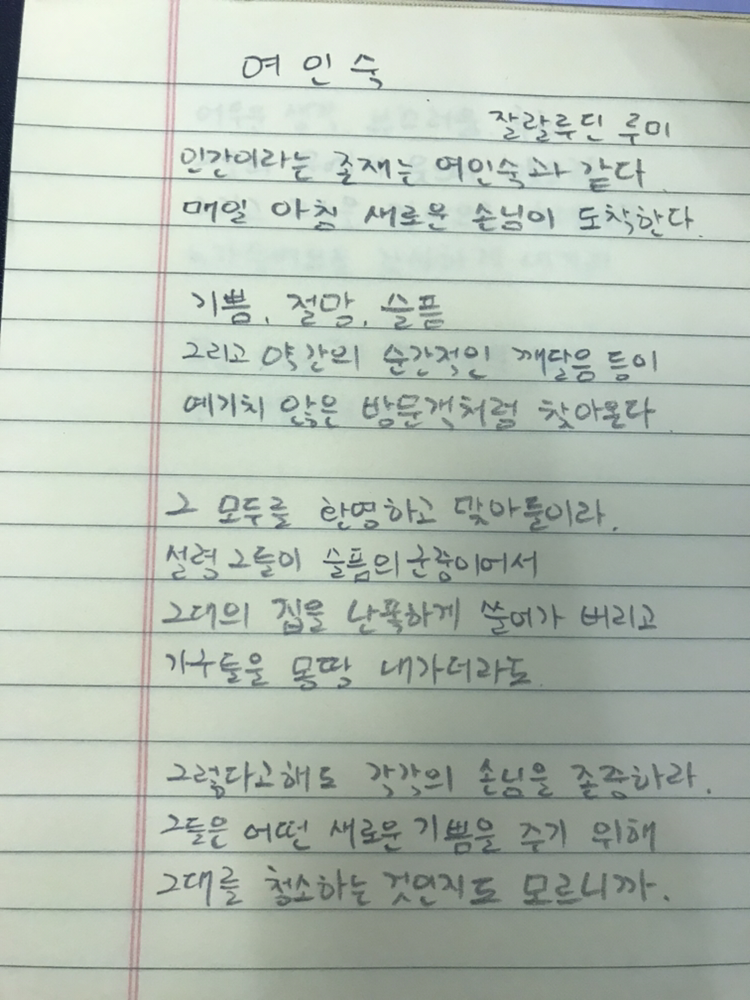 여인숙
잘랄루딘 루미
인간이라는 존재는 여인숙과 같다.
매일 아침 새로운 손님이 도착한다.
기쁨, 절망, 슬픔
그리고 약간의 순간적인 깨달음 등이
예기치 않은 방문객처럼 찾아온다
그 모두를 환영하고 맞아들이라.
설령 그들이 슬픔의 군중이어서
그대의 집을 난폭하게 쓸어가 버리고
가구들을 몽땅 내가더라도.
그렇다고해도 각각의 손님을 존중하라.
그들은 어떤 새로운 기쁨을 주기 위해
그대를 청소하는 것인지도 모르니까.